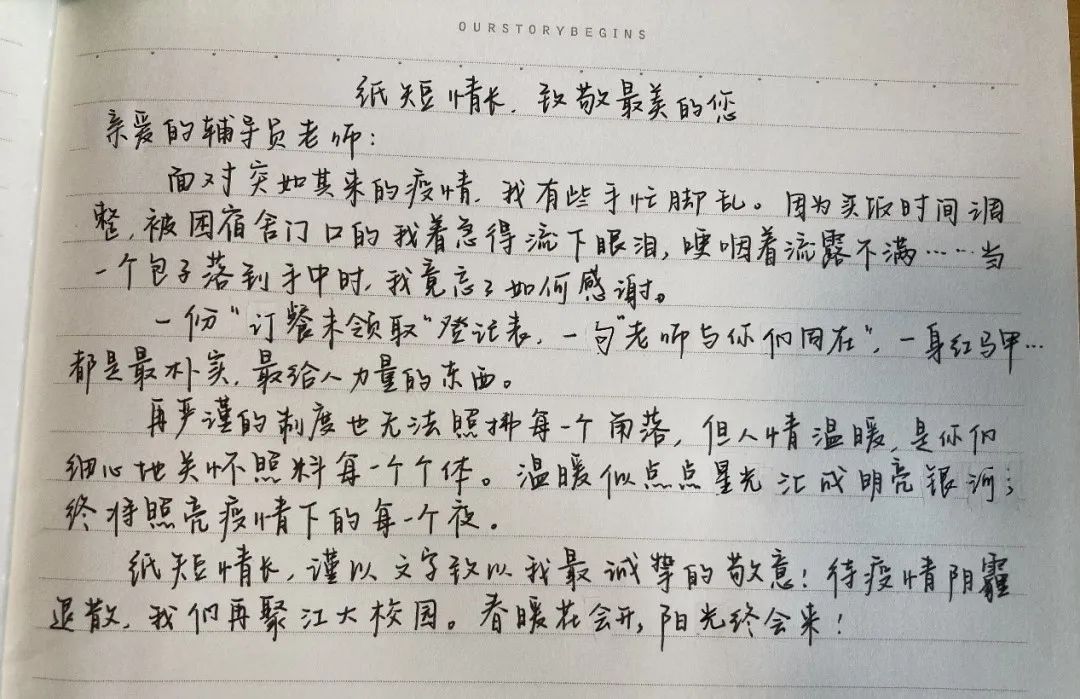 OURSTORYBEGINS
纸短情长,致敬最美的您
亲爱的辅导员老师:
面对突如其来的疫情,我有些手忙脚乱。因为买饭时间调
整,被困宿舍门口的我着急得流下眼泪,哽咽着流露不满……当
一个包子落到手中时,我竟忘了如何感谢。
一份“订餐未领取”登记表,一句“老师与你们同在”,一身红马甲…
都是最朴实,最给人力量的东西。
再严谨的制度也无法照拂每一个角落,但人情温暖,是你们
细心地关怀照料每一个个体。温暖似点点星光汇成明亮银河;
终将照亮疫情下的每一个夜。
纸短情长,谨以文字致以我最诚挚的敬意!待疫情阴霾
退散,我们再聚江大校园。春暖花会开,阳光终会来!